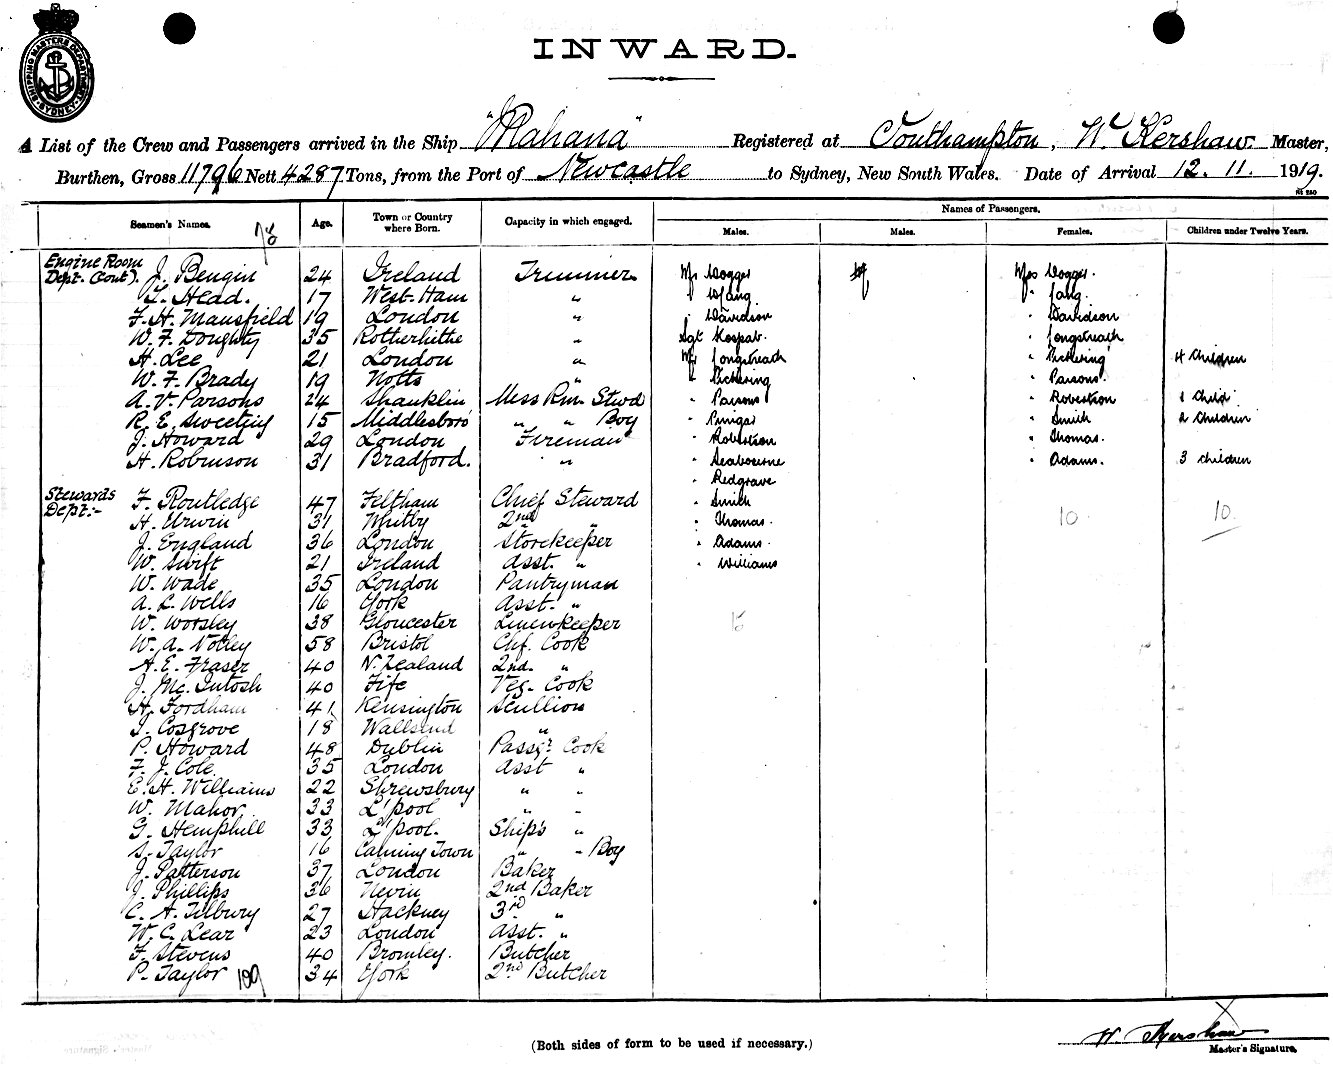 SHIPPING MASTERS DEPARTMENT SYDNEY
INWARD.
A List of the Crew and Passengers arrived in the Ship "Mahana" Registered at Southampton, W. Kershaw Master,
Burthen, Gross 11796 Nett 4287 Tons, from the Port of Newcastle to Sydney, New South Wales. Date of Arrival 12. 11. 1919.
Names of Passengers.
Seamen's Names. Age. Town or Country where Born. Capacity in which engaged. Males. Males. Females. Children under Twelve Years.
78
Engine Room
Dept. (Cont). J. Bengin 24 Ireland Trimmer Mr Dogger Mrs Dogger.
T. Head. 17 West-Ham " " Lang. " Lang.
F. H. Mansfield 19 London " " Davidson " Davidson
W. F. Doughty 35 Rotherhithe " Sgt " Longstreath
H. Lee 21 London " Mr Longstreath " Pickering 4 Children
W. F. Brady 19 Notts " " Pickering " Parsons.
A. V. Parsons 24 Shanklin Mess Rm. Stwd " Parsons " Robertson 1 Child
R. E. Sweeting 15 Middlesboro' " " Boy " " Smith 2 Children
J. Howard 29 London Fireman " Robertson " Thomas.
H. Robinson 31 Bradford. " " Seabourne " Adams. 3 children
" Redgrave
Stewards
Dept:- F. Routledge 47 Feltham Chief Steward " Smith
H. Urwin 31 Whitby 2nd " " Thomas. 10 10
J. England 36 London Storekeeper " Adams.
W. Swift 21 Ireland Asst. " " Williams
W. Wade 35 London Pantryman
A. L. Wells 16 York Asst. "
W. Worsley 38 Gloucester Linenkeeper 15
W. A. Notley 58 Bristol Chf. Cook
A. E. Fraser 40 N. Zealand 2nd. "
J. Mc. Intosh 40 Fife Veg. Cook
H. Fordham 41 Kensington Scullion
J. Cosgrove 18 Wallsend "
P. Howard 48 Dublin Passgr. Cook
F. J. Cole. 35 London Asst "
E. H. Williams 22 Shrewsbury " "
W. Mahor. 33 L'pool " "
G. Hemphill 33 L'pool. Ship's "
S. Taylor 16 Canning Town " " Boy
J. Patterson 37 London Baker
J. Phillips 36 Nevin 2nd Baker
C. A. Tilbury 27 Hackney 3rd "
W. C. Lear 23 London Asst. "
F. Stevens 40 Bromley. Butcher
P. Taylor 34 York 2nd Butcher
109
W. Kershaw
Master's Signature.
(Both sides of form to be used if necessary.)